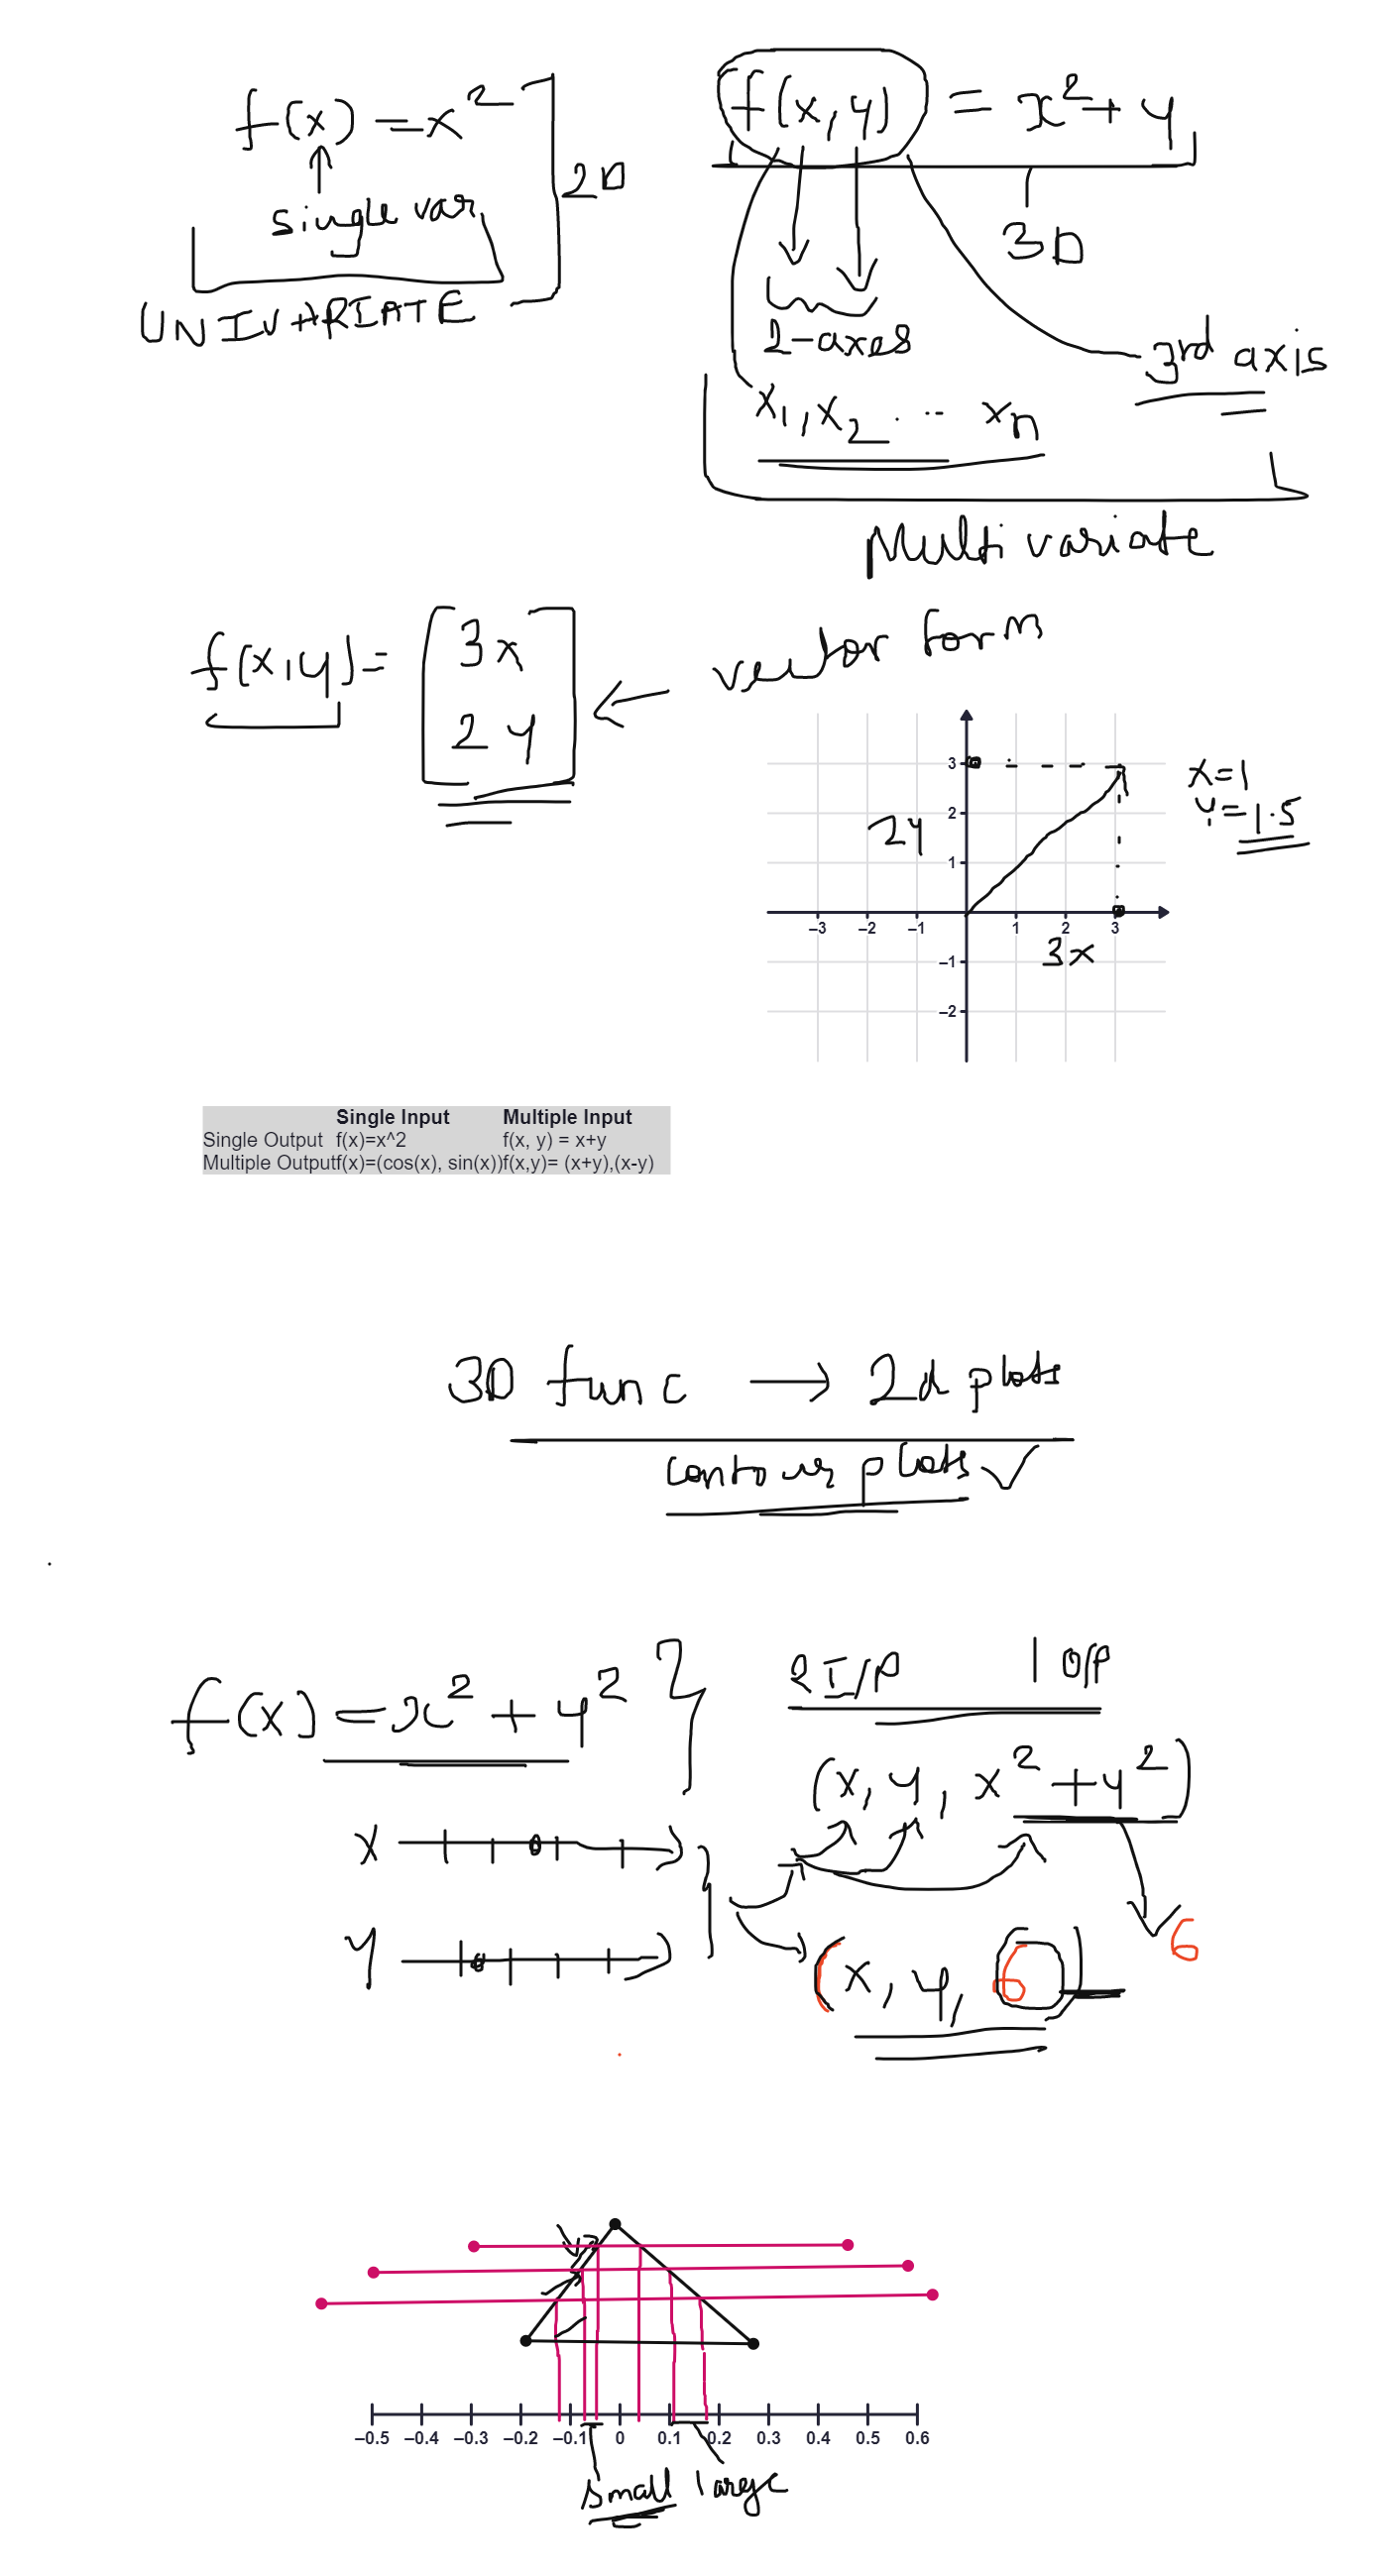 f(x) = x²
single var
UNIVARIATE
2D
f(x,y) = x² + y
3D
2-axes
3rd axis
x₁, x₂ . -- xₙ
Multivariate
f(x,y) = [3x
2y]
vector form
3
2
1
-1
-2
-3 -2 -1 1 2 3
2y
3x
x=1
y=1.5
Single Input Multiple Input
Single Output f(x)=x^2 f(x, y) = x+y
Multiple Output f(x)=(cos(x), sin(x)) f(x,y)= (x+y),(x-y)
3D func → 2d plots
contour plots ✓
f(x) = x² + y²
x
y
2 I/P 1 O/P
(x, y, x² + y²)
6
(x, y, 6)
-0.5 -0.4 -0.3 -0.2 -0.1 0 0.1 0.2 0.3 0.4 0.5 0.6
small large